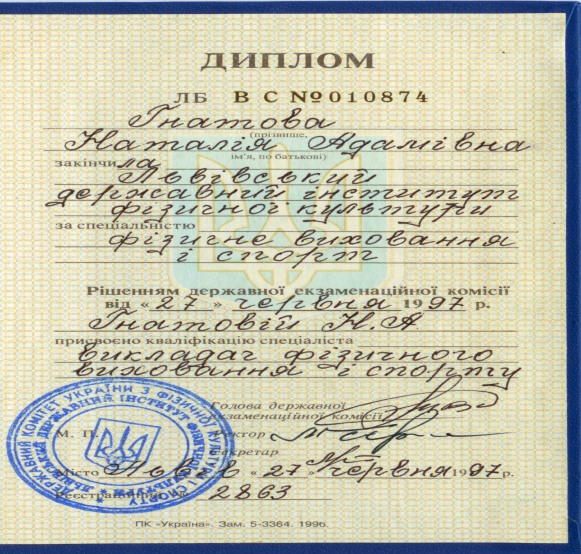 ДИПЛОМ
ЛБ В С №010874
Гнатова
(прізвище,
Наталія Адамівна
ім'я, по батькові)
закінчила
Львівський
державний інститут
фізичної культури
за спеціальністю
фізичне виховання
і спорт
Рішенням державної екзаменаційної комісії
від « 27 » червня 1997 р.
Гнатовій Н.А
присвоєно кваліфікацію спеціаліста
викладач фізичного
виховання і спорту
Голова державної
екзаменаційної комісії
М. П. Ректор
Секретар
Місто Львів « 27 » червня 1997 р.
Реєстраційний № 2863
ДЕРЖАВНИЙ КОМІТЕТ УКРАЇНИ З ФІЗИЧНОЇ КУЛЬТУРИ І СПОРТУ
ЛЬВІВСЬКИЙ ДЕРЖАВНИЙ ІНСТИТУТ ФІЗИЧНОЇ КУЛЬТУРИ
ПК «Україна». Зам. 5-3364. 1996.